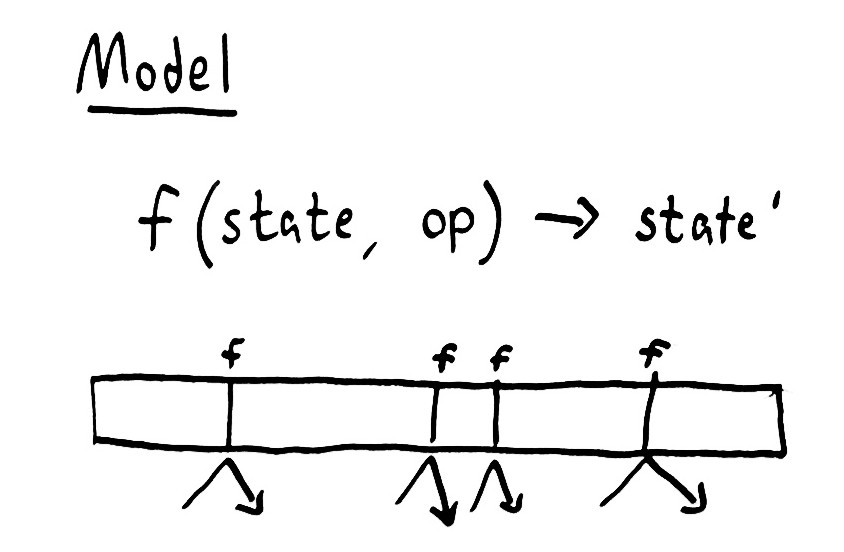 Model
f(state, op) → state'
f f f f